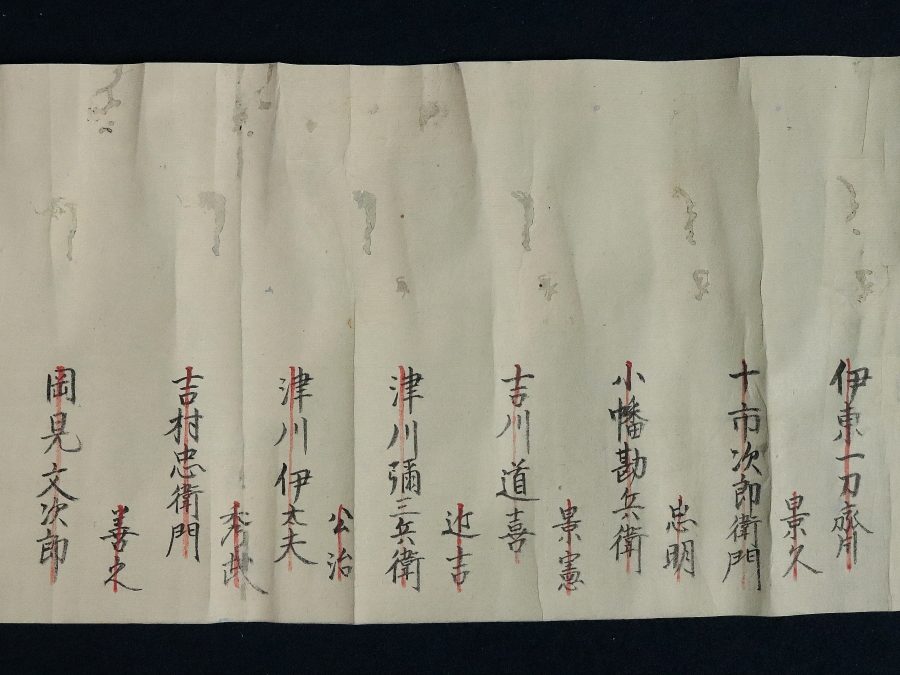 伊東一刀斎
景久
十市次郎衛門
忠明
小幡勘兵衛
景憲
吉川道喜
近吉
津川彌三兵衛
公治
津川伊太夫
秀政
吉村忠衛門
善之
岡見文次郎